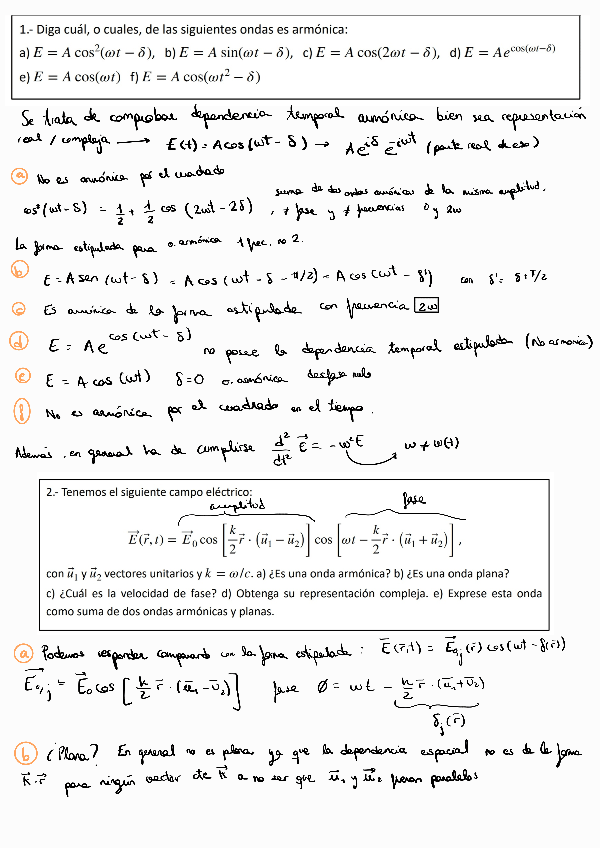 1.- Diga cuál, o cuales, de las siguientes ondas es armónica:
a) E = A cos²(ωt − δ), b) E = A sin(ωt − δ), c) E = A cos(2ωt − δ), d) E = Ae^cos(ωt−δ)
e) E = A cos(ωt) f) E = A cos(ωt² − δ)
Se trata de comprobar dependencia temporal armónica bien sea representación
real / compleja → E(t) = A cos(ωt − δ) → A e^iδ e^-iωt (parte real de eso)
a No es armónica por el cuadrado
cos²(ωt − δ) = 1/2 + 1/2 cos (2ωt − 2δ) , suma de dos ondas armónicas de la misma amplitud,
≠ fase y ≠ frecuencias 0 y 2ω
La forma estipulada para o. armónica 1 frec. no 2.
b E = A sen (ωt − δ) = A cos (ωt − δ − π/2) = A cos (ωt − δ') con δ' = δ + π/2
c Es armónica de la forma estipulada con frecuencia 2ω
d E = A e^cos(ωt − δ) no posee la dependencia temporal estipulada (No armonica)
e E = A cos (ωt) δ=0 o. armónica desfase nulo
f No es armónica por el cuadrado en el tiempo.
Además, en general ha de cumplirse d²/dt² E⃗ = −ω²E ω ≠ ω(t)
2.- Tenemos el siguiente campo eléctrico:
amplitud fase
E⃗(r⃗, t) = E⃗₀ cos [k/2 r⃗ · (u⃗₁ − u⃗₂)] cos [ωt − k/2 r⃗ · (u⃗₁ + u⃗₂)] ,
con u⃗₁ y u⃗₂ vectores unitarios y k = ω/c. a) ¿Es una onda armónica? b) ¿Es una onda plana?
c) ¿Cuál es la velocidad de fase? d) Obtenga su representación compleja. e) Exprese esta onda
como suma de dos ondas armónicas y planas.
a Podemos responder comparando con la forma estipulada : E⃗(r⃗,t) = E⃗₀,j (r⃗) cos (ωt − δ(r⃗))
E⃗₀,j = E⃗₀ cos [k/2 r⃗ · (u⃗₁ − u⃗₂)] fase Ø = ωt − k/2 r⃗ · (u⃗₁ + u⃗₂)
δj (r⃗)
b ¿Plana? En general no es plana, ya que la dependencia espacial no es de la forma
k⃗ · r⃗ para ningún vector cte k⃗ a no ser que u⃗₁ y u⃗₂ fueran paralelos